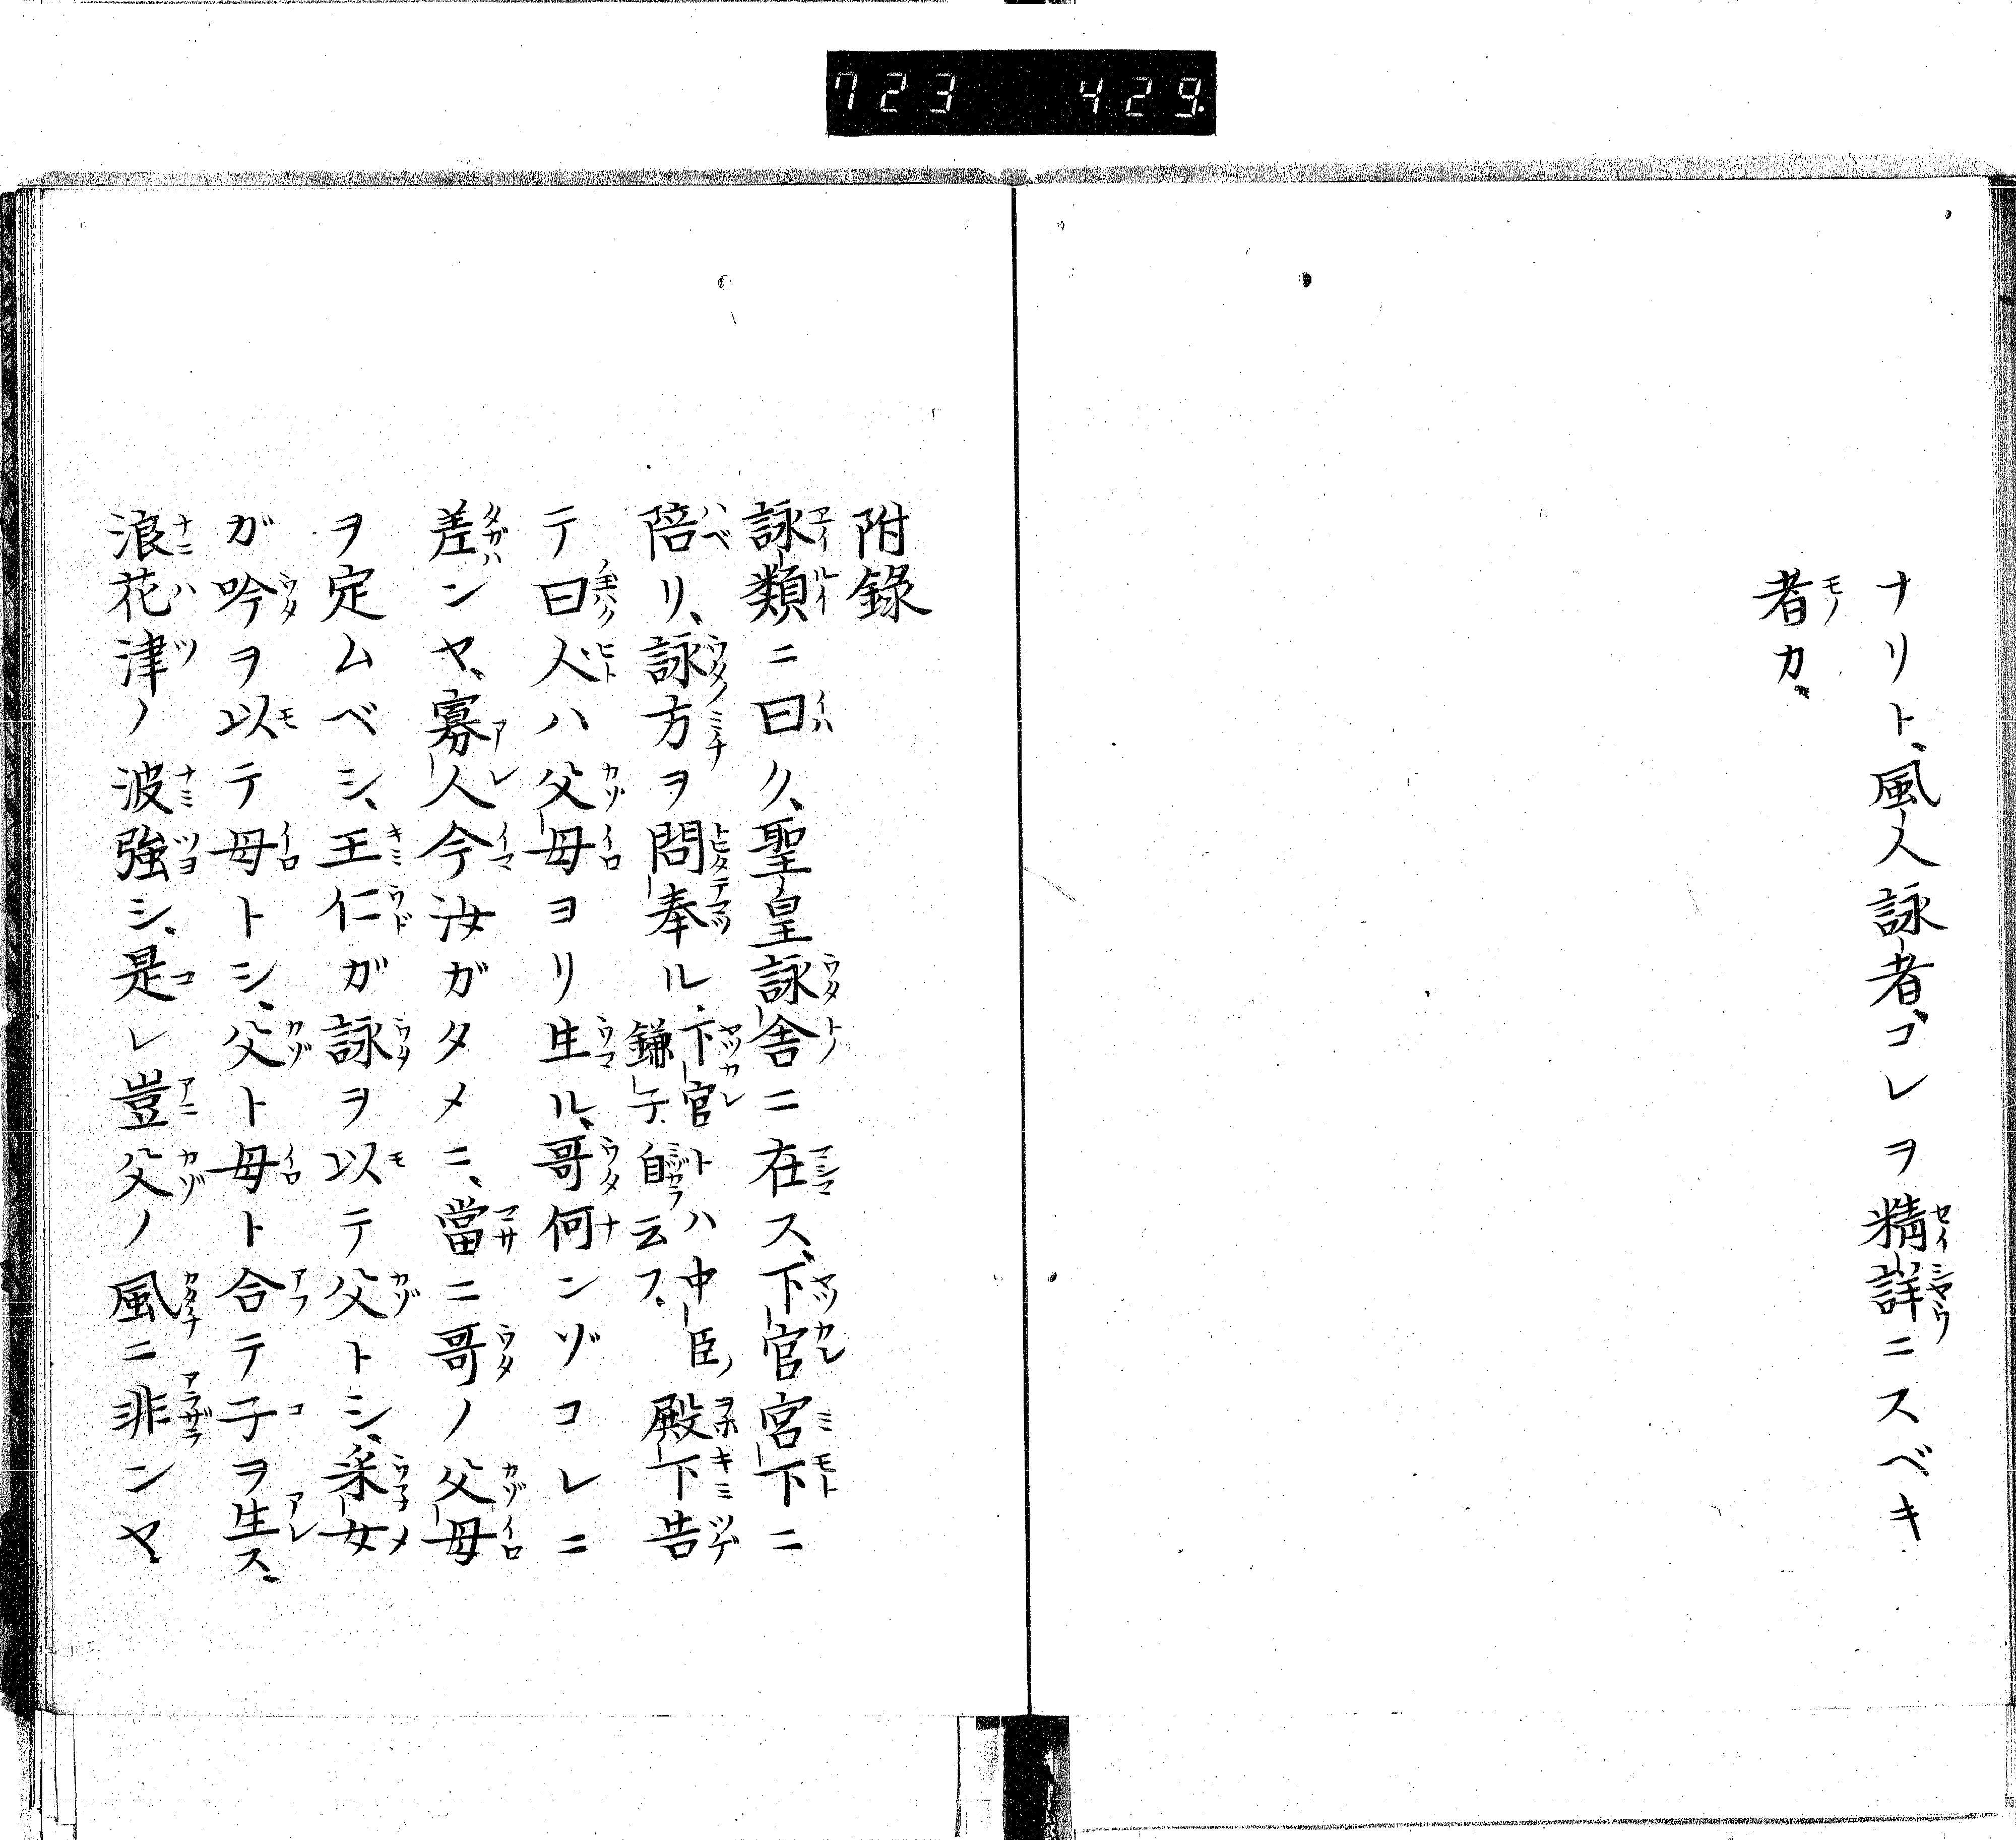 723 429
ナリト、風人詠者、コレヲ精詳ニスベキ
者カ、
附錄
詠類ニ曰ク、聖皇詠舎ニ在ス、下官宮下ニ
陪リ、詠方ヲ問奉ル、下官トハ中臣ノ鎌子自云フ、殿下告
テ曰人ハ父母ヨリ生ル、哥何ンゾコレニ
差ンヤ、寡人今汝ガタメニ、當ニ哥ノ父母
ヲ定ムベシ、王仁ガ詠ヲ以テ父トシ、采女
ガ吟ヲ以テ母トシ、父ト母ト合テ子ヲ生ス、
浪花津ノ波強シ、是レ豈父ノ風ニ非ンヤ、